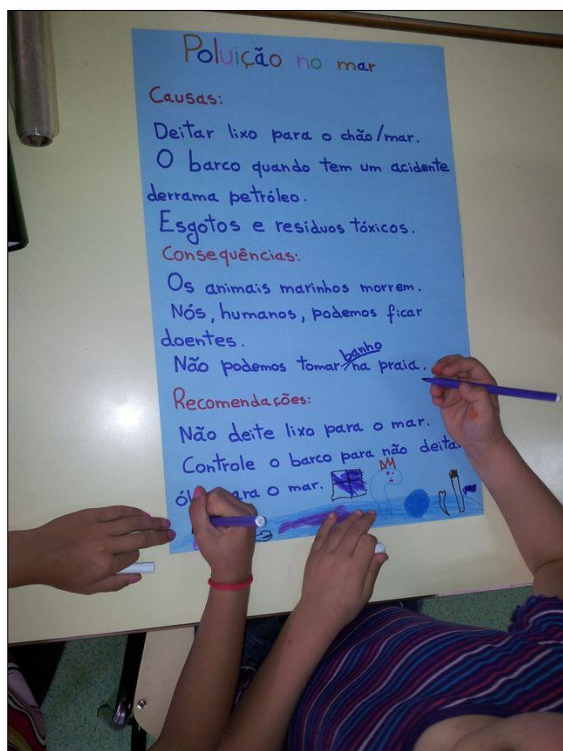 Poluição no mar
Causas:
Deitar lixo para o chão/mar.
O barco quando tem um acidente
derrama petróleo.
Esgotos e resíduos tóxicos.
Consequências:
Os animais marinhos morrem.
Nós, humanos, podemos ficar
doentes.
Não podemos tomar banho na praia.
Recomendações:
Não deite lixo para o mar.
Controle o barco para não deita
para o mar.